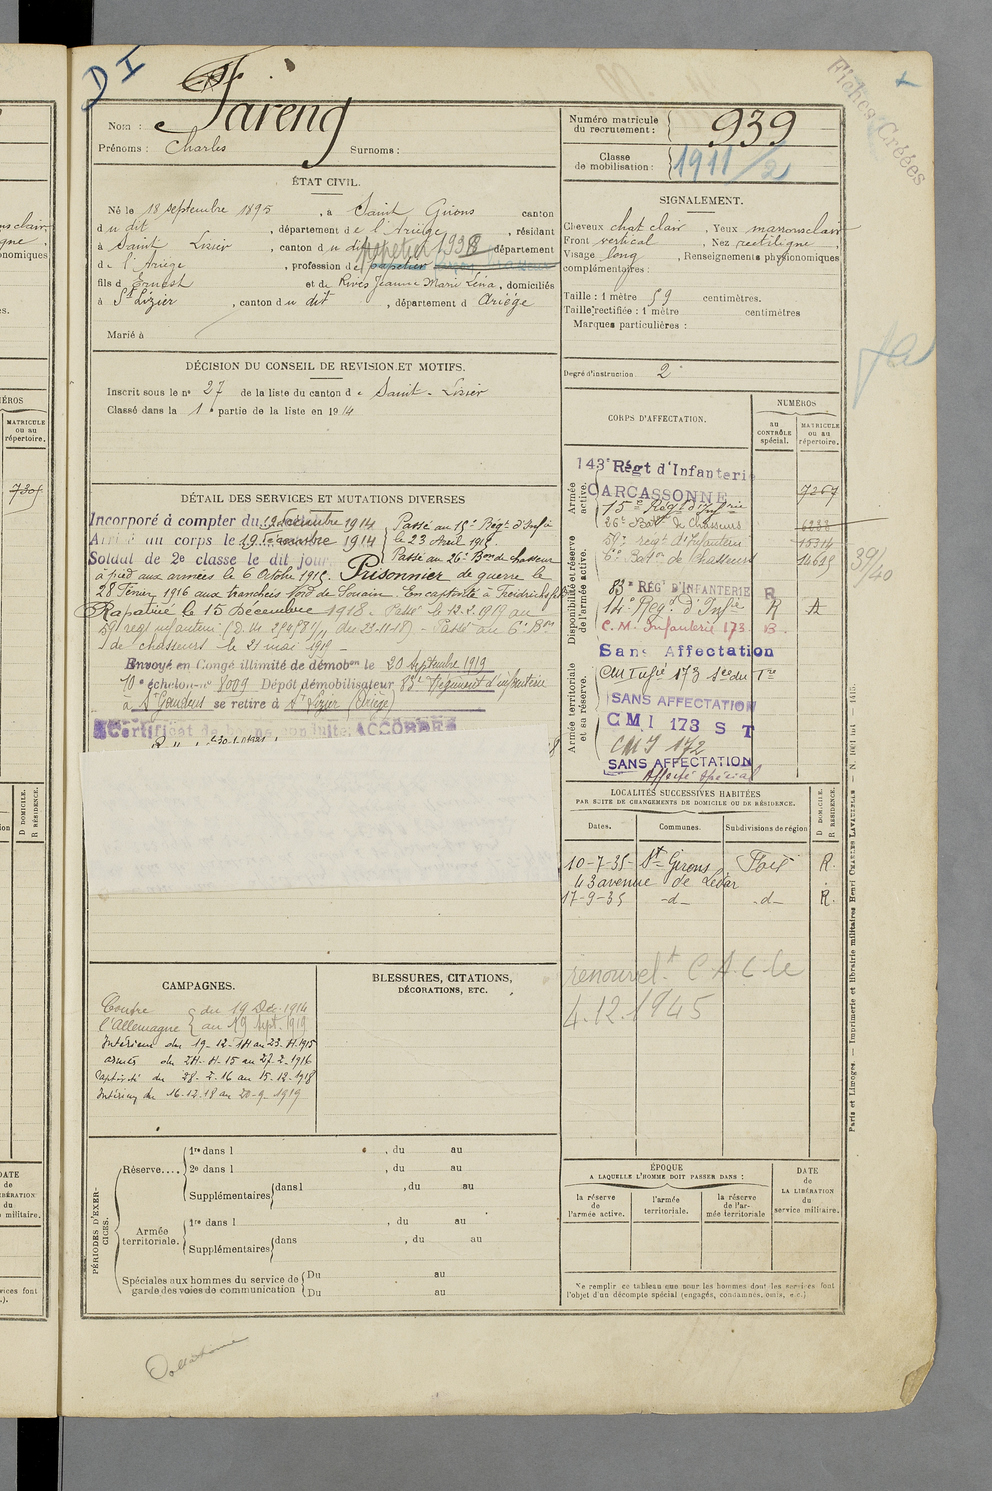 D I
Nom : Fareng
Prénoms : Charles Surnoms :
Numéro matricule du recrutement : 939
Classe de mobilisation : 1911/2
Fiches Créées
ÉTAT CIVIL.
Né le 18 septembre 1895, à Saint Girons canton
du dit, département de l'Ariège, résidant
à Saint Lizier, canton du dit département
de l'Ariège, profession de papetier
papetier 1938
fils d Ernest et de Rives Jeanne Marie Lina, domiciliés
à St Lizier, canton du dit, département d Ariège
Marié à
SIGNALEMENT.
Cheveux chat clair, Yeux marrons clair
Front vertical, Nez rectiligne
Visage long, Renseignements physionomiques
complémentaires :
Taille : 1 mètre 59 centimètres.
Taille rectifiée : 1 mètre centimètres
Marques particulières :
Degré d'instruction 2
DÉCISION DU CONSEIL DE REVISION ET MOTIFS.
Inscrit sous le no 27 de la liste du canton de Saint-Lizier
Classé dans la 1e partie de la liste en 1914
DÉTAIL DES SERVICES ET MUTATIONS DIVERSES
Incorporé à compter du 19 décembre 1914
Arrivé au corps le 19 décembre 1914
Soldat de 2e classe le dit jour.
Passé au 15e Régt d'Infie
le 23 Avril 1915.
Passé au 26e Bon de chasseurs
à pied aux armées le 6 Octobre 1915. Prisonnier de guerre le
28 Février 1916 aux tranchées Nord de Souain. En captivité à
Rapatrié le 15 Décembre 1918. Passé le 12.2.1919 au
59e régt infanterie Passé au 6e Bon
de chasseurs le 21 mai 1919
Envoyé en Congé illimité de démobon le 20 Septembre 1919
10e échelon no 8009 Dépôt démobilisateur 83e Régiment d'infanterie
à St Gaudens se retire à St Lizier (Ariège)
Certificat de bonne conduite ACCORDÉ
CORPS D'AFFECTATION.
NUMÉROS
au CONTRÔLE spécial.
MATRICULE ou au répertoire.
Armée active.
Disponibilité et réserve de l'armée active.
Armée territoriale et sa réserve.
143e Régt d'Infanterie
CARCASSONNE 7267
15e Régt d'Infrie
26e Baton de Chasseurs 6232
59e régt d'Infanterie 15314
6e Baton de Chasseurs 14615
83e RÉGt D'INFANTERIE R
14e Régt d'Infie R A
C. M. Infanterie 173 B.
Sans Affectation
SANS AFFECTATION
CMI 173 S T
CMI 172
SANS AFFECTATION
Affecté spécial
39/40
LOCALITÉS SUCCESSIVES HABITÉES
PAR SUITE DE CHANGEMENTS DE DOMICILE OU DE RÉSIDENCE.
Dates. Communes. Subdivisions de région D DOMICILE. R RÉSIDENCE.
10-7-35 St Girons Foix R.
43 avenue de Ledar
17-9-35 -d- -d- R.
renouvelt C.A.C le
4.12.1945
CAMPAGNES.
Contre l'Allemagne du 19 Déc. 1914
au 19 Sept. 1919
Intérieur du 19-12-14 au 23-4-1915
armées du 24-4-15 au 27-2-1916
Captivité du 28-2-16 au 15-12-1918
Intérieur du 16-12-18 au 20-9-1919
BLESSURES, CITATIONS,
DÉCORATIONS, ETC.
PÉRIODES D'EXERCICES.
Réserve.... 1re dans l , du au
2e dans l , du au
Supplémentaires dans l , du au
Armée territoriale. 1re dans l , du au
Supplémentaires dans , du au
Spéciales aux hommes du service de garde des voies de communication
Du au
Du au
ÉPOQUE
A LAQUELLE L'HOMME DOIT PASSER DANS :
la réserve de l'armée active.
l'armée territoriale.
la réserve de l'armée territoriale
DATE de LA LIBÉRATION du service militaire.
Ne remplir ce tableau que pour les hommes dont les services font
l'objet d'un décompte spécial (engagés, condamnés, omis, etc.)
Paris et Limoges. — Imprimerie et librairie militaires Henri CHARLES-LAVAUZELLE
MATRICULE ou au répertoire.
7305
D DOMICILE.
R RÉSIDENCE.